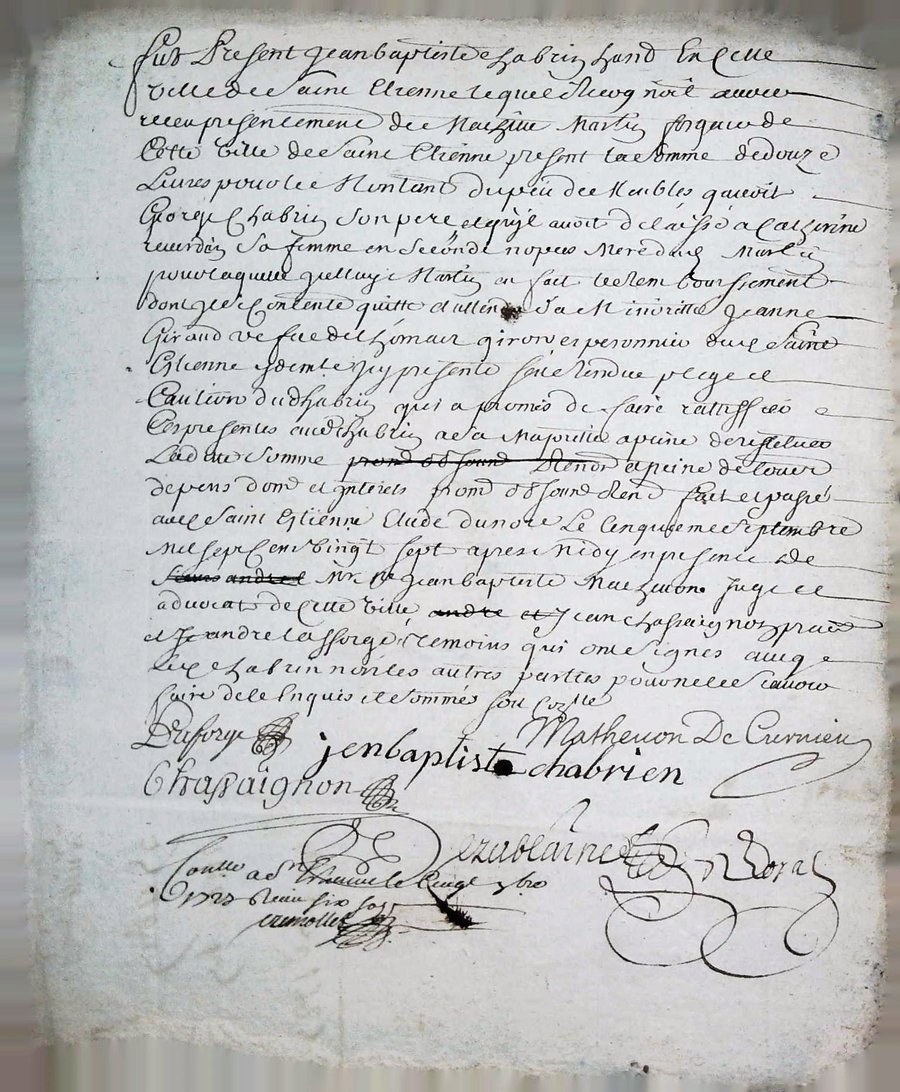 fut Present jeanbaptiste chabrin hand En Cette
ville de Saint Etienne lequel
receu presentement de Martin forgeur de
Cette ville de Saint Etienne present la somme de douze
Livres pour le Montant du peu de Meubles qauoit
George Chabrin Son pere et qu'jl auoit delaissé a Catherine
reuerdin Sa femme en Secondes nopces Mere dud Martin
pour laquelle Martin en fait le Remboursement
dont jl se Contente quitte et attendu Sa Minorité Jeanne
Giraud vefue de thomas giron esperonnier dud Saint
Etienne jcy presente s'est rendue plege et
Caution dud Chabrin qui a promis de faire rattiffier
Ces presentes aud Chabrin a sa Majorité a peine de restituer
Ladite Somme a peine de tous
depens dom et jnterets prom obl soum Renon fait et passé
aud Saint Etienne Etude du nore Le Cinquieme Septembre
Mil Sept Cens Vingt Sept apres Midy en presence de
Mr Me Jeanbaptiste Mathevon Juge et
aduocat de Cette Ville andre et Jean Chassaignon prat
et Sr andre lafforge temoins qui ont Signés auec
Led Chabrin non les autres parties pour ne le Scauoir
faire de ce Enquis et Sommés
Dlaforge
Mathevon De Curnieu
jenbaptiste chabrien
Chassaignon
Dezablaine
n Royal
Conlle a St Etienne le 7bre
1727 Receu six sols